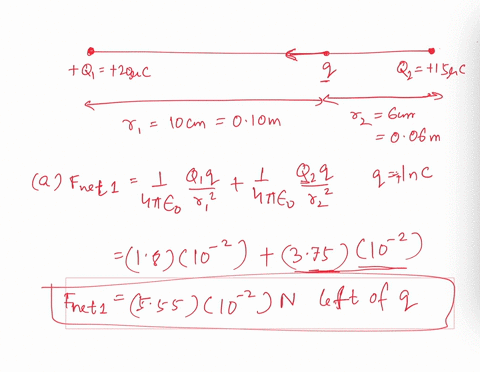 +Q₁ = +20μC q Q₂ = +15μC
r₁ = 10cm = 0.10m r₂ = 6cm
= 0.06m
(a) Fnet1 = 1/4πε₀ Q₁q/r₁² + 1/4πε₀ Q₂q/r₂² q = 1nC
= (1.8)(10⁻²) + (3.75)(10⁻²)
Fnet1 = (5.55)(10⁻²) N left of q